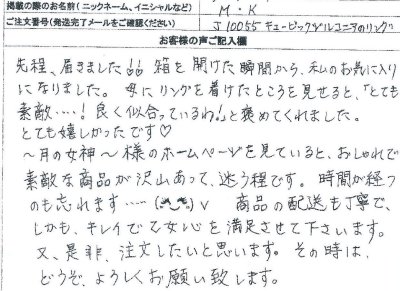 掲載の際のお名前(ニックネーム、イニシャルなど)
M・K
ご注文番号(発送完了メールをご確認ください)
J10055 キュービックジルコニアのリング
お客様の声ご記入欄
先程、届きました!! 箱を開けた瞬間から、私のお気に入り
になりました。母にリングを着けたところを見せると、「とても
素敵…! 良く似合っているわ!」と褒めてくれました。
とても嬉しかったです♡
〜月の女神〜様のホームページを見ていると、おしゃれで
素敵な商品が沢山あって、迷う程です。時間が経つ
のも忘れます…… (*^_^*)v 商品の配送も丁寧で、
しかも、キレイで乙女心を満足させて下さいます。
又、是非、注文したいと思います。その時は、
どうぞ、よろしくお願い致します。